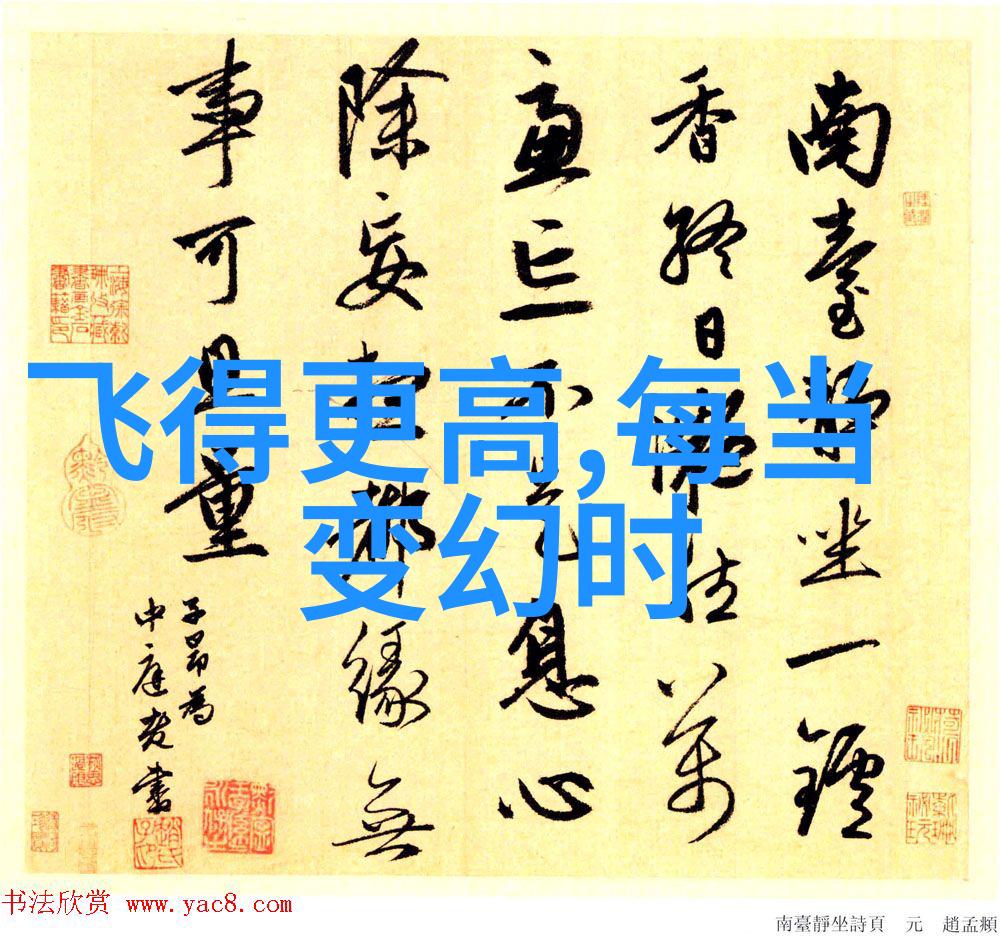 飞得更高,每当
变幻时
南臺靜坐一鑪
香終日凝然萬
慮亡不是息心
除妄想都緣無
事可量
子昂為
中庭老書
书法欣赏 www.yac8.com
南臺靜坐詩頁 元 趙孟頫